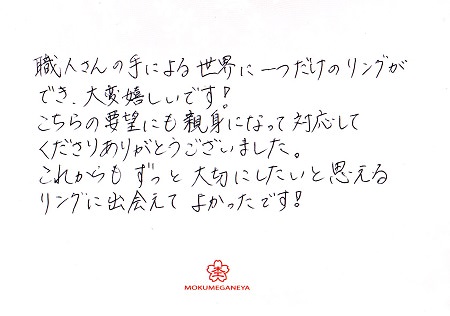 職人さんの手による世界に一つだけのリングが
でき、大変嬉しいです!
こちらの要望にも親身になって対応して
くださりありがとうございました。
これからもずっと大切にしたいと思える
リングに出会えてよかったです!
MOKUMEGANEYA